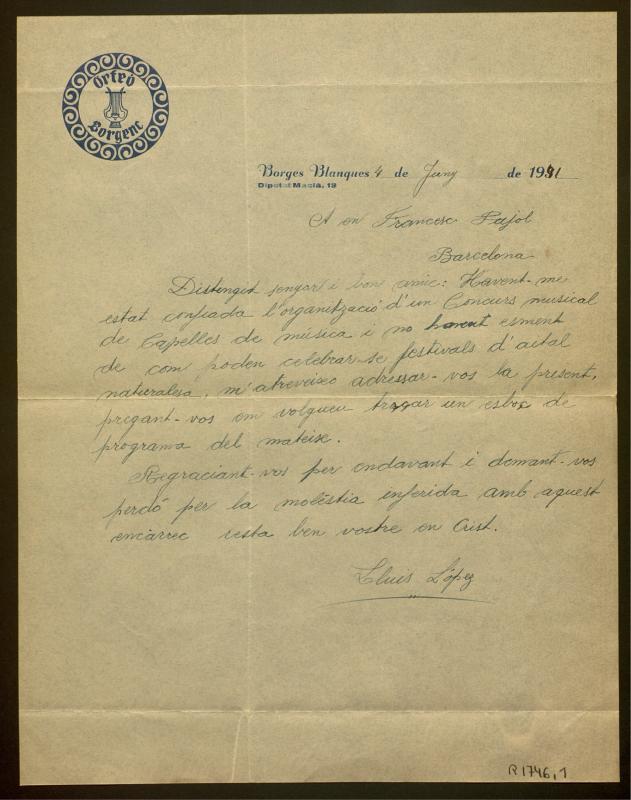 Orfeó
Borgenc
Borges Blanques 4 de Juny de 1931
Diputat Macià, 13
A en Francesc Pujol
Barcelona
Distingit senyor i bon amic: Havent-me
estat confiada l'organització d'un Concurs musical
de Capelles de música i no havent esment
de com poden celebrar-se festivals d'aital
naturalesa, m'atreveixo adressar-vos la present,
pregant-vos em volgueu traçar un esboç de
programa del mateix.
Regraciant-vos per endavant i demant-vos
perdó per la molèstia inferida amb aquest
encàrrec resta ben vostre en Crist.
Lluis López
R 1746,1